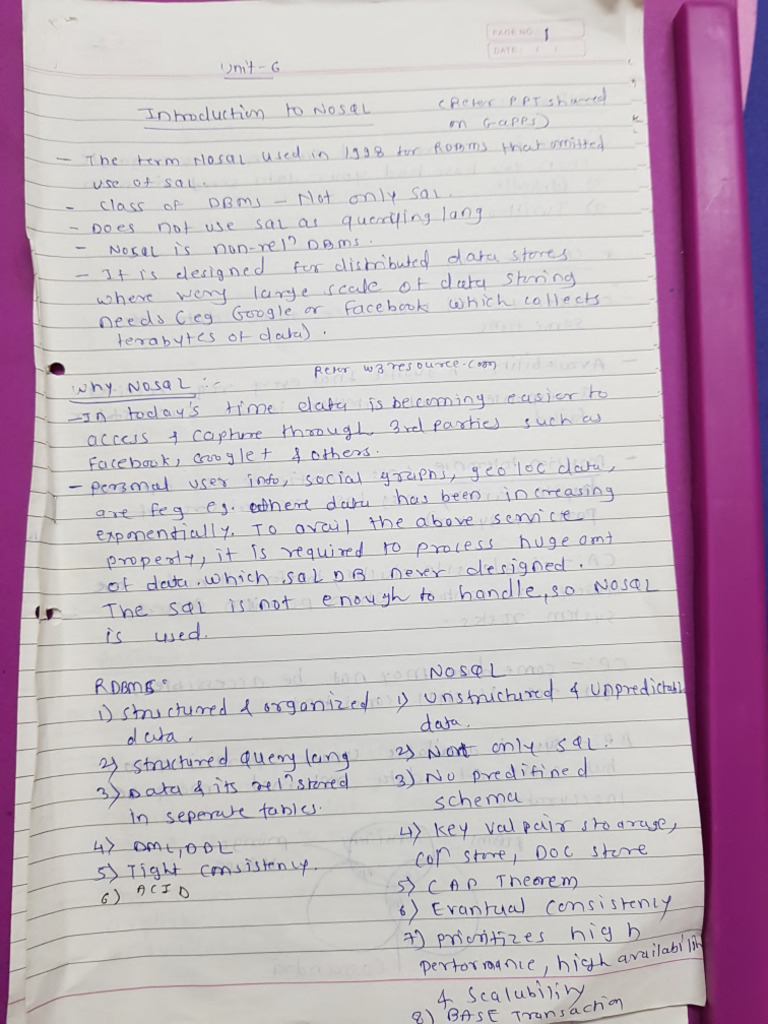 PAGE NO. 1
DATE: / /
Unit-6
Introduction to NOSQL
(Refer PPT shared
on Gapps)
- The term NoSQL used in 1998 for RDBMS that omitted
use of SQL.
- Class of DBMS - Not only SQL.
- Does not use SQL as querying lang
- NoSQL is non-relⁿ DBMS.
- It is designed for distributed data stores
where very large scale of data storing
needs (eg Google or Facebook which collects
terabytes of data).
Refer w3resource.com
Why NOSQL :-
- In today's time data is becoming easier to
access & capture through 3rd parties such as
Facebook, Google+ & others.
- Personal user info, social graphs, geo loc data,
are feg eg. where data has been increasing
exponentially. To avail the above service
properly, it is required to process huge amt
of data. which SQL DB never designed.
The SQL is not enough to handle, so NOSQL
is used.
RDBMS:
1) Structured & organized
data.
2) Structured query lang
3) Data & its relⁿ stored
in seperate tables.
4) DML, DDL
5) Tight consistency.
6) ACID
NOSQL
1) Unstructured & unpredictabl
data.
2) Not only SQL.
3) No predifined
schema
4) Key val pair storage,
colⁿ store, Doc store
5) CAP Theorem
6) Evantual consistency
7) prioritizes high
performance, high availabili
& scalability
8) BASE Transaction